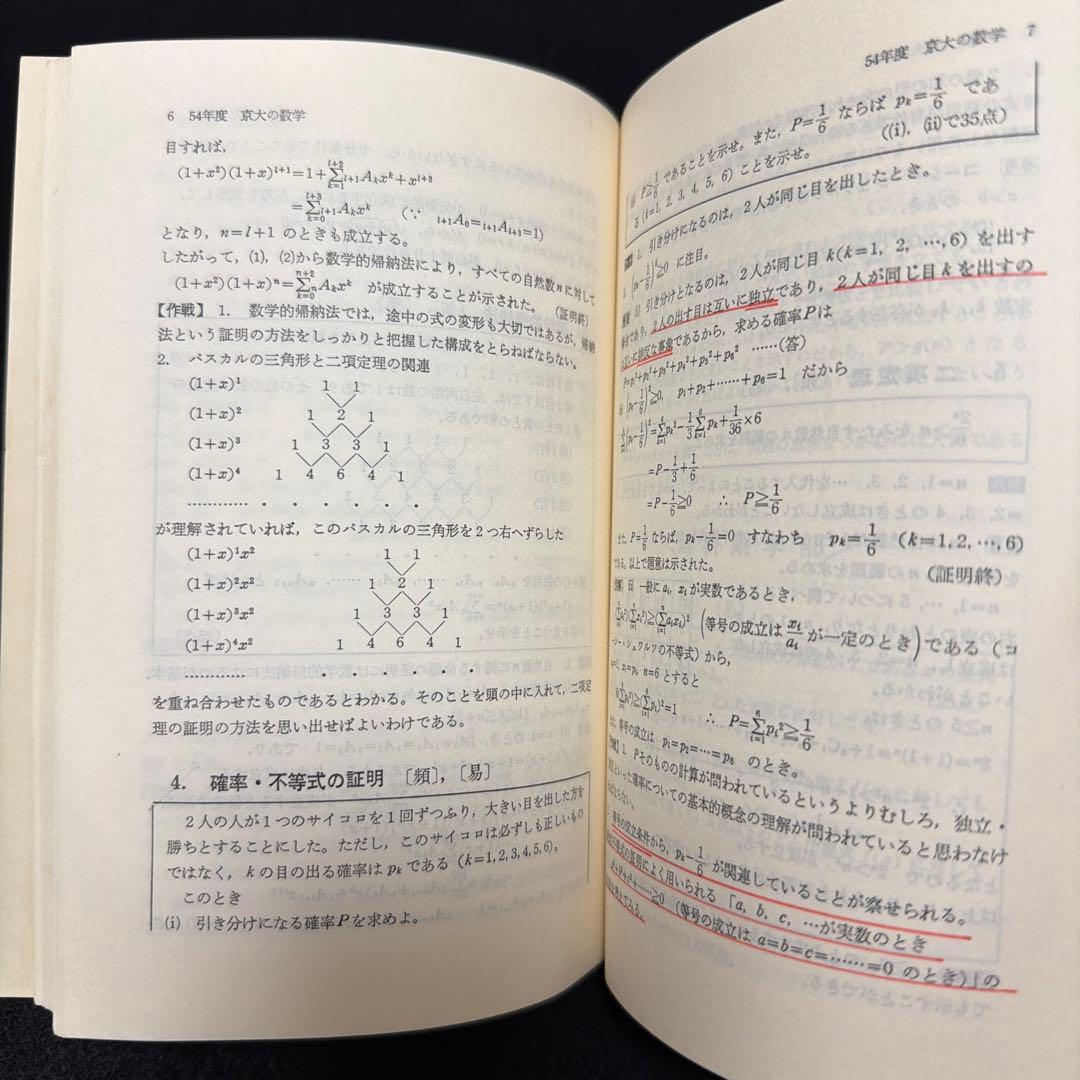 6 54年度 京大の数学
目すれば,
(1+x²)(1+x)^{l+1}=1+\sum_{k=1}^{l+2}{}_{l+1}A_kx^k+x^{l+3}
=\sum_{k=0}^{l+3}{}_{l+1}A_kx^k (∵ {}_{l+1}A_0={}_{l+1}A_{l+3}=1)
となり, n=l+1 のときも成立する。
したがって, (1), (2)から数学的帰納法により, すべての自然数nに対して
(1+x²)(1+x)^n=\sum_{k=0}^{n+2}{}_nA_kx^k が成立することが示された。 (証明終)
【作戦】 1. 数学的帰納法では, 途中の式の変形も大切ではあるが, 帰納
法という証明の方法をしっかりと把握した構成をとらねばならない。
2. パスカルの三角形と二項定理の関連
(1+x)¹ 1 1
(1+x)² 1 2 1
(1+x)³ 1 3 3 1
(1+x)⁴ 1 4 6 4 1
………………
が理解されていれば, このパスカルの三角形を2つ右へずらした
(1+x)¹x² 1 1
(1+x)²x² 1 2 1
(1+x)³x² 1 3 3 1
(1+x)⁴x² 1 4 6 4 1
………………
を重ね合わせたものであるとわかる。そのことを頭の中に入れて, 二項定
理の証明の方法を思い出せばよいわけである。
4. 確率・不等式の証明 [頻], [易]
2人の人が1つのサイコロを1回ずつふり, 大きい目を出した方を
勝ちとすることにした。ただし, このサイコロは必ずしも正しいもの
ではなく, kの目の出る確率は p_kである (k=1,2,3,4,5,6)。
このとき
(i) 引き分けになる確率Pを求めよ。
54年度 京大の数学 7
P≧1/6 であることを示せ。また, P=1/6 ならば p_k=1/6 であ
る (k=1, 2, 3, 4, 5, 6) ことを示せ。 ((i), (ii)で35点)
1. 引き分けになるのは, 2人が同じ目を出したとき。
2. (p_k-1/6)²≧0 に注目。
(i) 引き分けとなるのは, 2人が同じ目 k(k=1, 2, …, 6) を出す
合であり, 2人の出す目は互いに独立であり, 2人が同じ目kを出すの
互いに排反な事象であるから, 求める確率Pは
P=p₁²+p₂²+p₃²+p₄²+p₅²+p₆² ……(答)
(p_k-1/6)²≧0, p₁+p₂+……+p₆=1 だから
\sum_{k=1}^{6}(p_k-1/6)²=\sum_{k=1}^{6}p_k²-1/3\sum_{k=1}^{6}p_k+1/36×6
=P-1/3+1/6
=P-1/6≧0 ∴ P≧1/6
また, P=1/6 ならば, p_k-1/6=0 すなわち p_k=1/6 (k=1,2,…,6)
である。以上で題意は示された。 (証明終)
一般に a_i, x_i が実数であるとき,
(\sum a_i²)(\sum x_i²)≧(\sum a_ix_i)² (等号の成立は x_i/a_i が一定のとき)である (コ
ーシー・シュワルツの不等式) から,
x_i=p_i, n=6 とすると
(\sum p_i²)≧(\sum p_i)²=1 ∴ P=\sum_{i=1}^{6}p_i²≧1/6
また, 等号の成立は p₁=p₂=…=p₆ のとき。
1. Pそのものの計算が問われているというよりむしろ, 独立・
といった確率についての基本的概念の理解が問われていると思わなけ
ればならない。
等号の成立条件から, p_k-1/6 が関連していることが察せられる。
不等式の証明によく用いられる「a, b, c, …が実数のとき
a²+b²+c²+……≧0 (等号の成立は a=b=c=……=0 のとき)」の